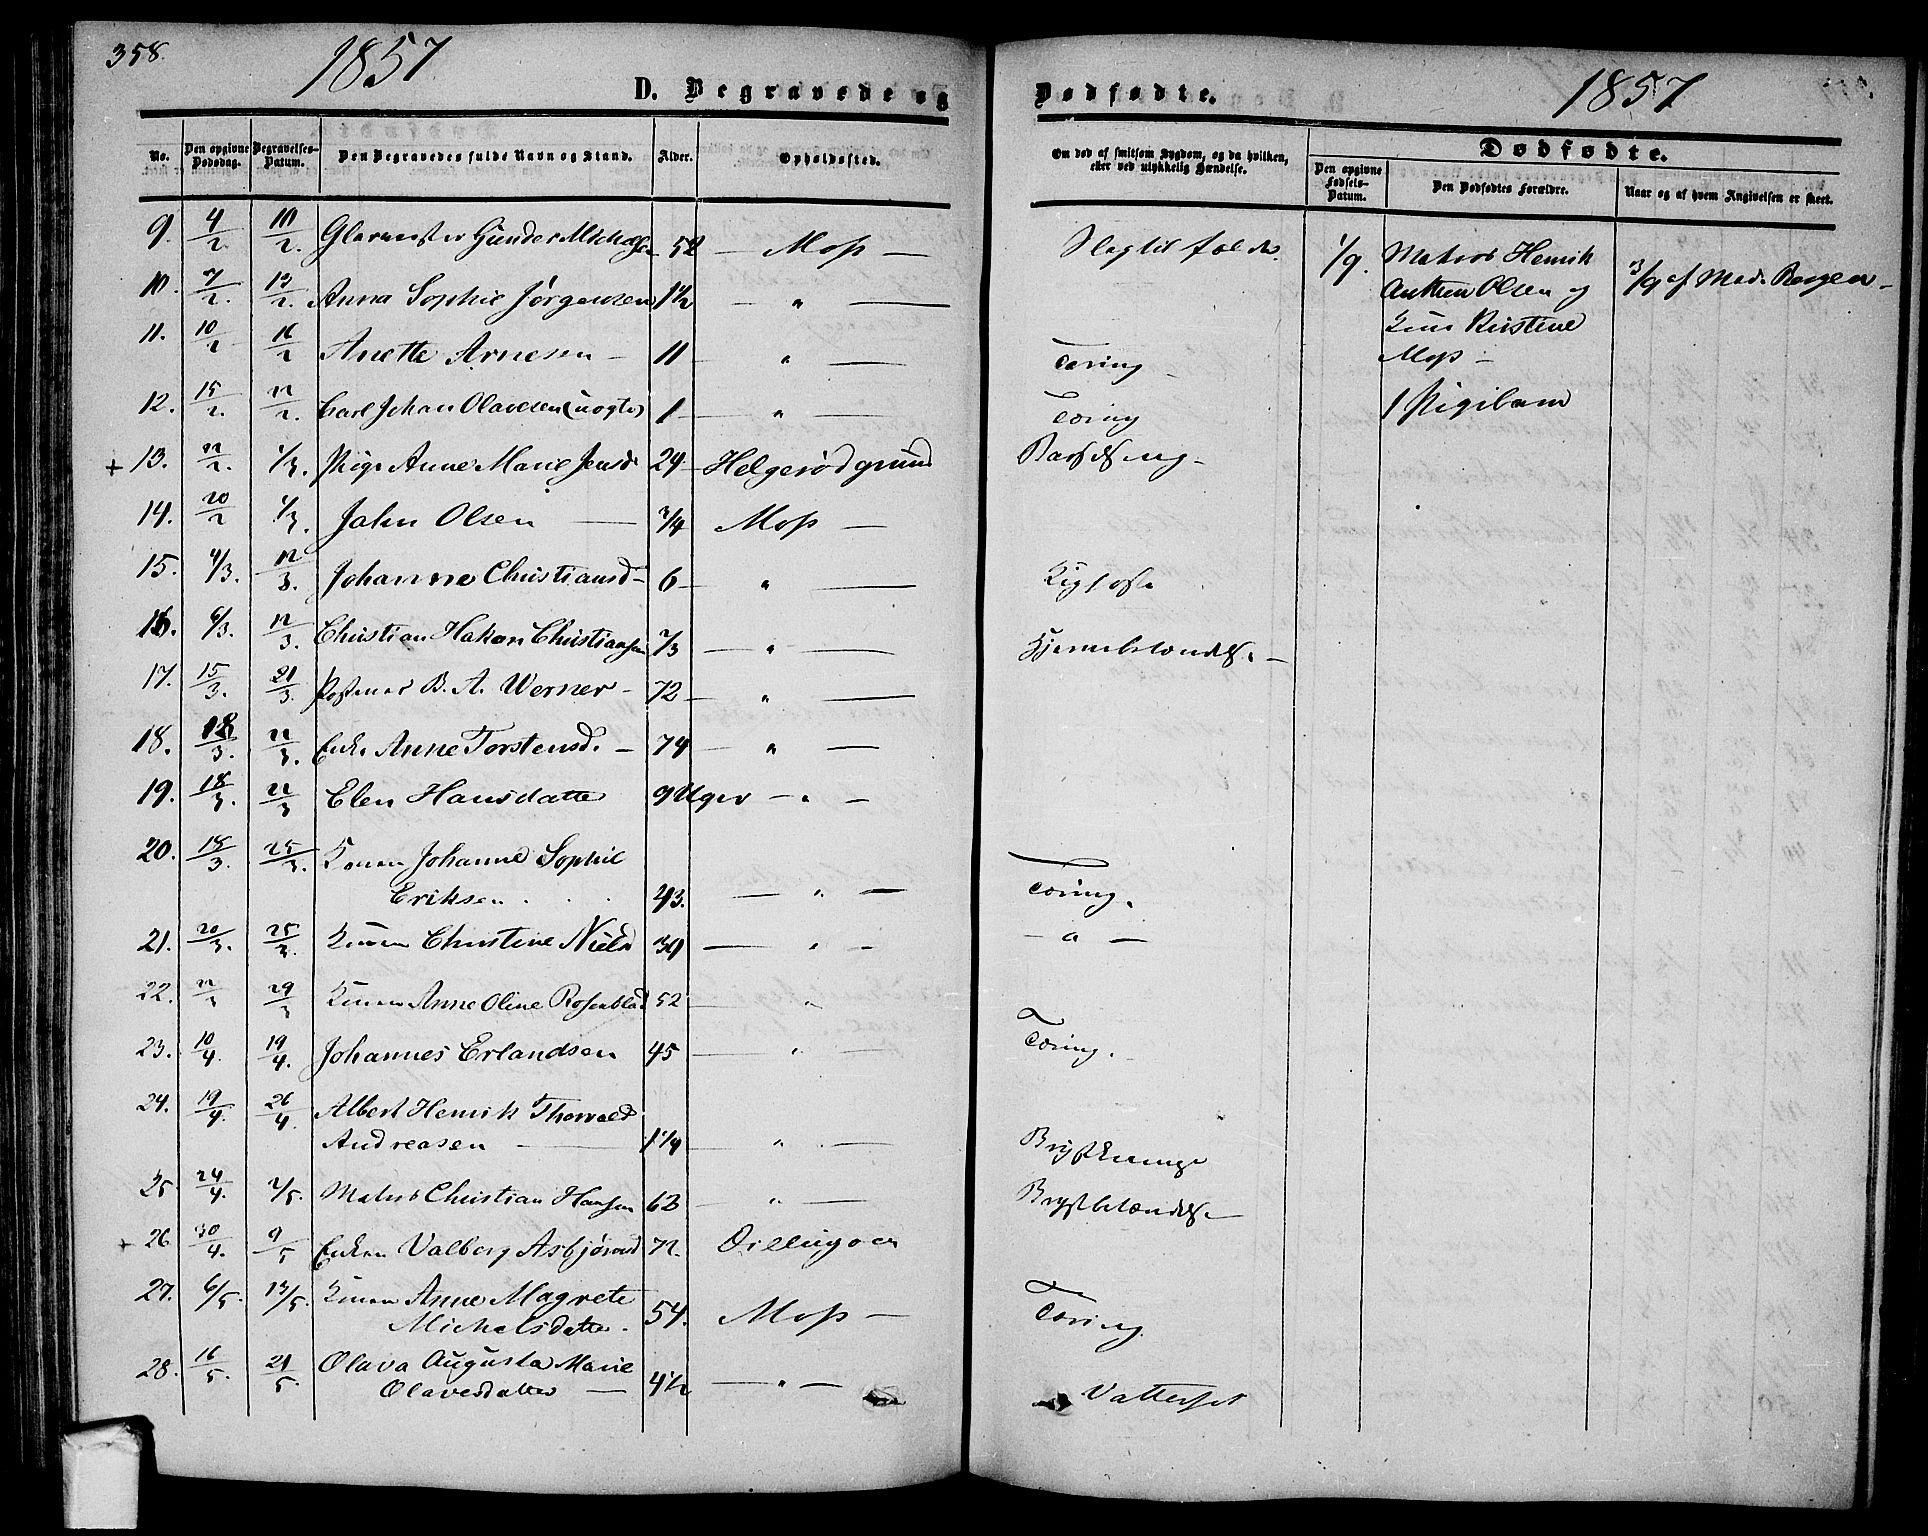 358.
1857
D. Begravede og
No. Den opgivne Dødsdag. Begravelses-Datum. Den Begravedes fulde Navn og Stand. Alder. Opholdssted.
9. 4/2. 10/2. Glarmester Gunder Michelsen 52 — Moss —
10. 7/2. 12/2. Anna Sophie Jørgensen 1 1/2 — " —
11. 10/2 16/2 Anette Arnesen — 11 — " —
12. 15/2. 22/2. Carl Johan Olavesen (uægte) 1 — " —
+ 13. 22/2. 1/3. Pige Anne Marie Jensd 24 — Helgerød grund
14. 20/2 1/3. John Olsen — 3/4 Moss —
15. 4/3. 12/3. Johanne Christiansd — 6 — " —
16. 6/3. 12/3. Christian Hakon Christiansen 2/3 — " —
17. 15/3. 21/3. Postmes B. A. Werner — 72 — " —
18. 18/3. 22/3. Enke Anne Torstensd. — 74 — " —
19. 18/3. 22/3 Elen Hansdatter 9 Uger — " —
20. 18/3. 25/3. Konen Johanne Sophie
Eriksen 43. — " —
21. 20/3. 25/3. Konen Christine Nielsd 39 — " —
22. 22/3 29/3 Konen Anne Oline Rosenblad 52 — "
23. 10/4. 19/4. Johannes Erlandsen 45 — " —
24. 19/4. 26/4. Albert Henrik Thorvald
Andreasen — 1 1/4 — " —
25. 24/4. 2/5. Matros Christian Hansen 63 — " —
+ 26. 30/4. 9/5 Enken Valborg Asbjørnsd 72. Dillingøen
27. 6/5. 13/5. Konen Anne Magrete
Michelsdatter. 54. Moss —
28. 16/5. 21/5. Olava Augusta Marie
Olavesdatter — 4 1/2 — " —
Dødfødte.
1857
Om død af smitsom Sygdom, og da hvilken, eller ved ulykkelig Hændelse.
Dødfødte.
Den opgivne Fødsels-Datum. Den Dødfødtes Forældre. Naar og af hvem Angivelsen er skeet.
Slagtilfælde.
Tæring —
Tæring
Barselseng —
Kighoste
Hjernebetændelse —
Tæring.
— " —
Tæring.
Brystbetændelse
Tæring.
Vattersot
1/9. Matros Henrik
Anthon Olsen og
Kone Kirstine
Moss —
1 Pigebarn
3/9 af Mad. Bergen —